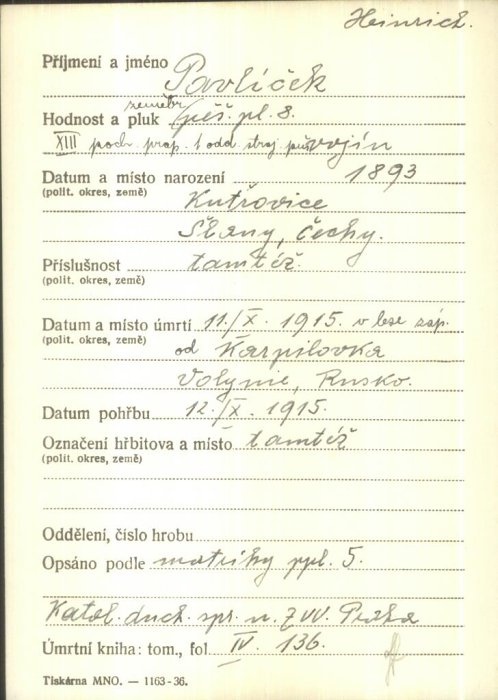 Heinrich.
Příjmení a jméno Pavlíček
Hodnost a pluk zeměbr. pěš. pl. 8.
XIII poch. prap. 1 odd. stroj. pušek vojín
Datum a místo narození 1893
(polit. okres, země) Kutřovice
Slaný, Čechy.
Příslušnost tamtéž.
(polit. okres, země)
Datum a místo úmrtí 11./X. 1915. v lese záp.
(polit. okres, země) od Karpilovka
Volynie, Rusko.
Datum pohřbu 12./X. 1915.
Označení hřbitova a místo tamtéž
(polit. okres, země)
Oddělení, číslo hrobu
Opsáno podle matriky ppl. 5.
Katol. duch. spr. n. ZVV. Praha
Úmrtní kniha: tom., fol. IV. 136.
Tiskárna MNO. — 1163-36.